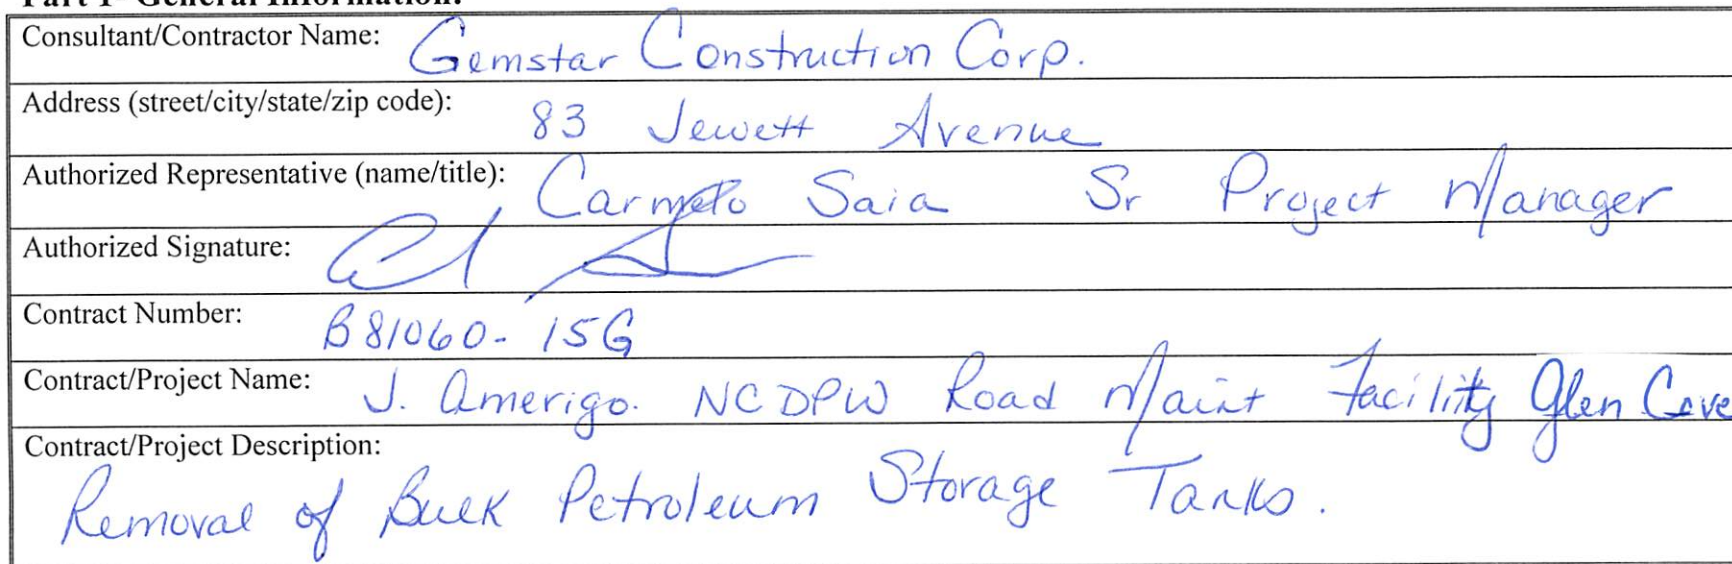 Part 1- General Information:
Consultant/Contractor Name: Gemstar Construction Corp.
Address (street/city/state/zip code): 83 Jewett Avenue
Authorized Representative (name/title): Carmelo Saia Sr Project Manager
Authorized Signature:
Contract Number: B81060-15G
Contract/Project Name: J. Amerigo. NCDPW Road Maint Facility Glen Cove
Contract/Project Description:
Removal of Bulk Petroleum Storage Tanks.